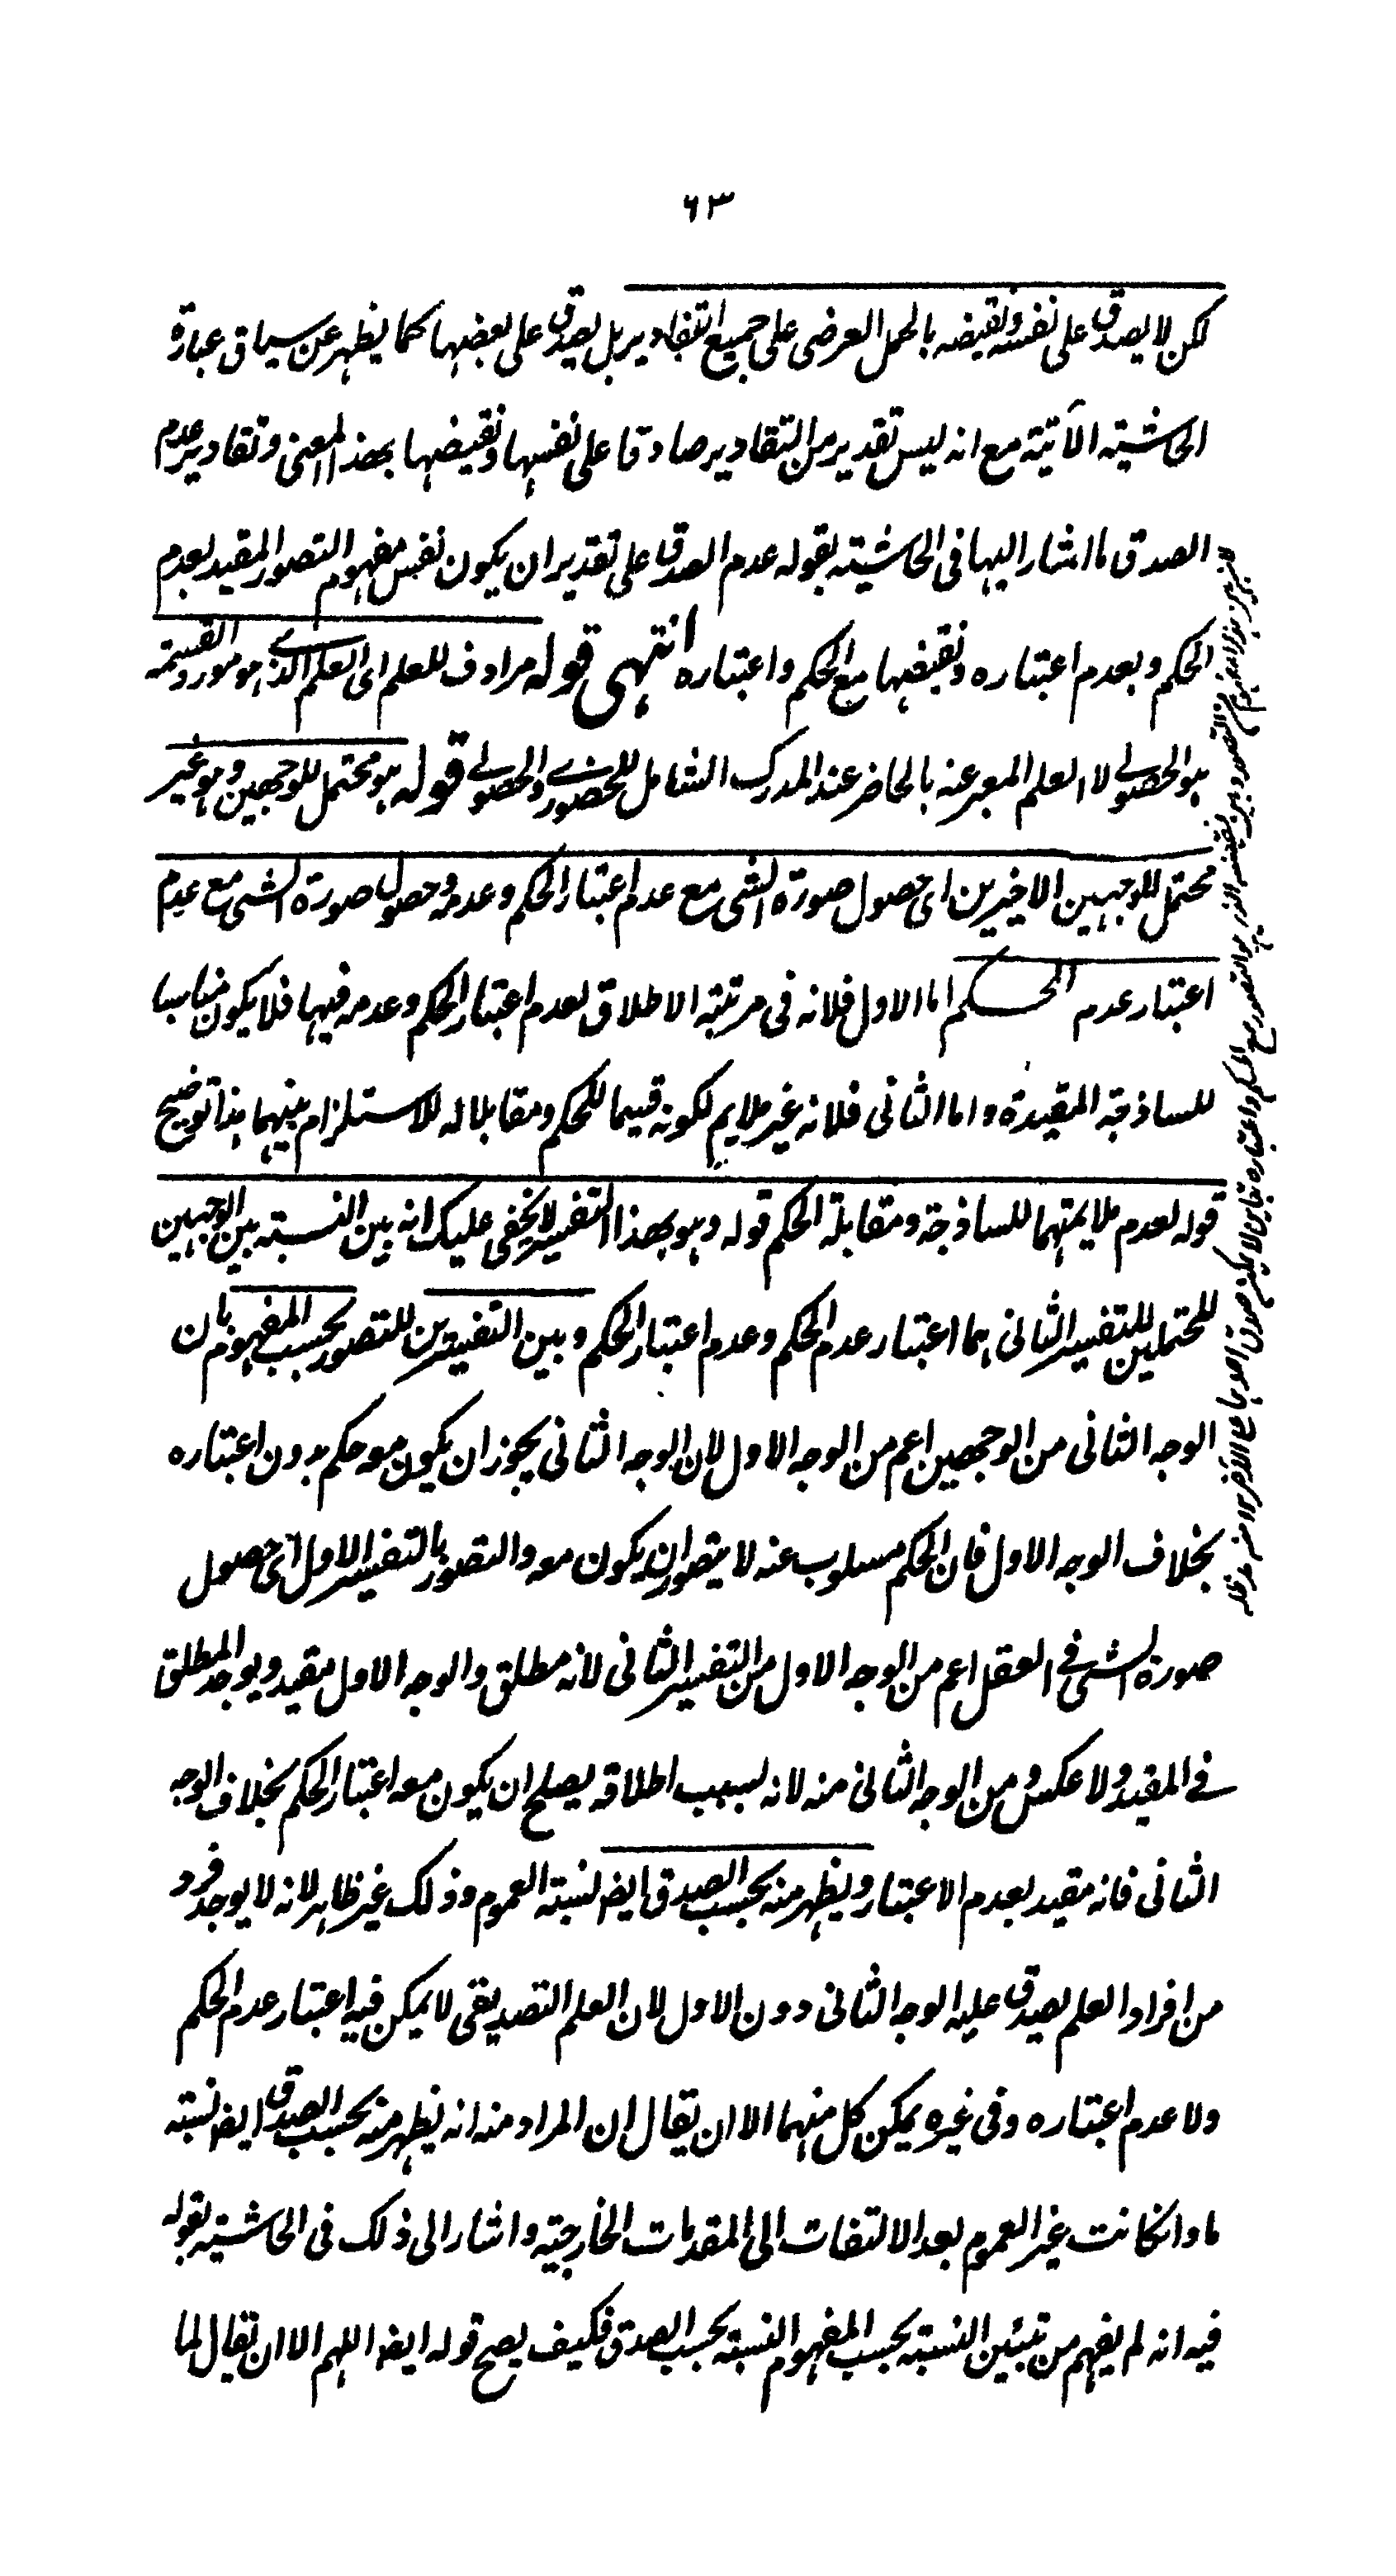 ٦٣
لكن لا يصدق على نفسه ونقيضه بالحمل العرضى على جميع التقادير بل يصدق على بعضها كما يظهر عن سياق عبارة
الحاشيته الآتية مع انه ليس تقدير من التقادير صادقا على نفسها ونقيضها بهذا المعنى وتقادير عدم
الصدق ما اشار اليها فى الحاشيته بقوله عدم الصدق على تقدير ان يكون نفس مفهوم التصور المقيد بعدم
الحكم وبعدم اعتباره ونقيضها مع الحكم واعتباره انتهى قوله مرادف للعلم اى العلم الذے هو مورد القسمة
هو الحصولے لا العلم المعبر عنه بالحاضر عند المدرك الشامل للحضورے والحصولے قوله هو محتمل للوجهين وهو غير
محتمل للوجهين الاخيرين اى حصول صورة الشى مع عدم اعتبار الحكم وعدمه وحصول صورة الشى مع عدم
اعتبار عدم الحكم اما الاول فلانه فى مرتبة الاطلاق لعدم اعتبار الحكم وعدمه فيها فلا يكون مناسبا
للساذجة المقيدة واما الثانى فلانه غير ملايم لكونه قيما للحكم ومقابلا له للاستلزام بينهما هذا توضيح
قوله لعدم ملايمتهما للساذجة ومقابلة الحكم قوله وهو بهذا التفسير لا يخفى عليك انه بين النسبته بين الوجهين
للمحتملين للتفسير الثانى هما اعتبار عدم الحكم وعدم اعتبار الحكم وبين التفسيرين للتصور بحسب المفهوم بان
الوجه الثانى من الوجهين اعم من الوجه الاول لان الوجه الثانى يجوز ان يكون معه حكم بدون اعتباره
بخلاف الوجه الاول فان الحكم مسلوب عنه لا يتصور ان يكون معه والتصور بالتفسير الاول اى حصول
صورة الشى فے العقل اعم من الوجه الاول من التفسير الثانى لانه مطلق والوجه الاول مقيد ويوجد المطلق
فے المقيد ولا عكس ومن الوجه الثانى منه لانه بسبب اطلاقه يصلح ان يكون معه اعتبار الحكم بخلاف الوجه
الثانى فانه مقيد بعدم الاعتبار ويظهر منه بحسب الصدق ايضا نسبته العموم وذلك غير ظاهر لانه لا يوجد فرد
من افراد العلم يصدق عليه الوجه الثانى دون الاول لان العلم التصديقى لا يمكن فيه اعتبار عدم الحكم
ولا عدم اعتباره وفى غيره يمكن كل منهما الا ان يقال ان المراد منه انه يظهر منه بحسب الصدق ايضا نسبته
ما وانكانت غير العموم بعد الالتفات الى المقدمات الخارجيته واشار الى ذلك فى الحاشيته بقوله
فيه انه لم يفهم من تبئين النسبته بحسب المفهوم النسبته بحسب الصدق فكيف يصح قوله ايضا اللهم الا ان يقال لما